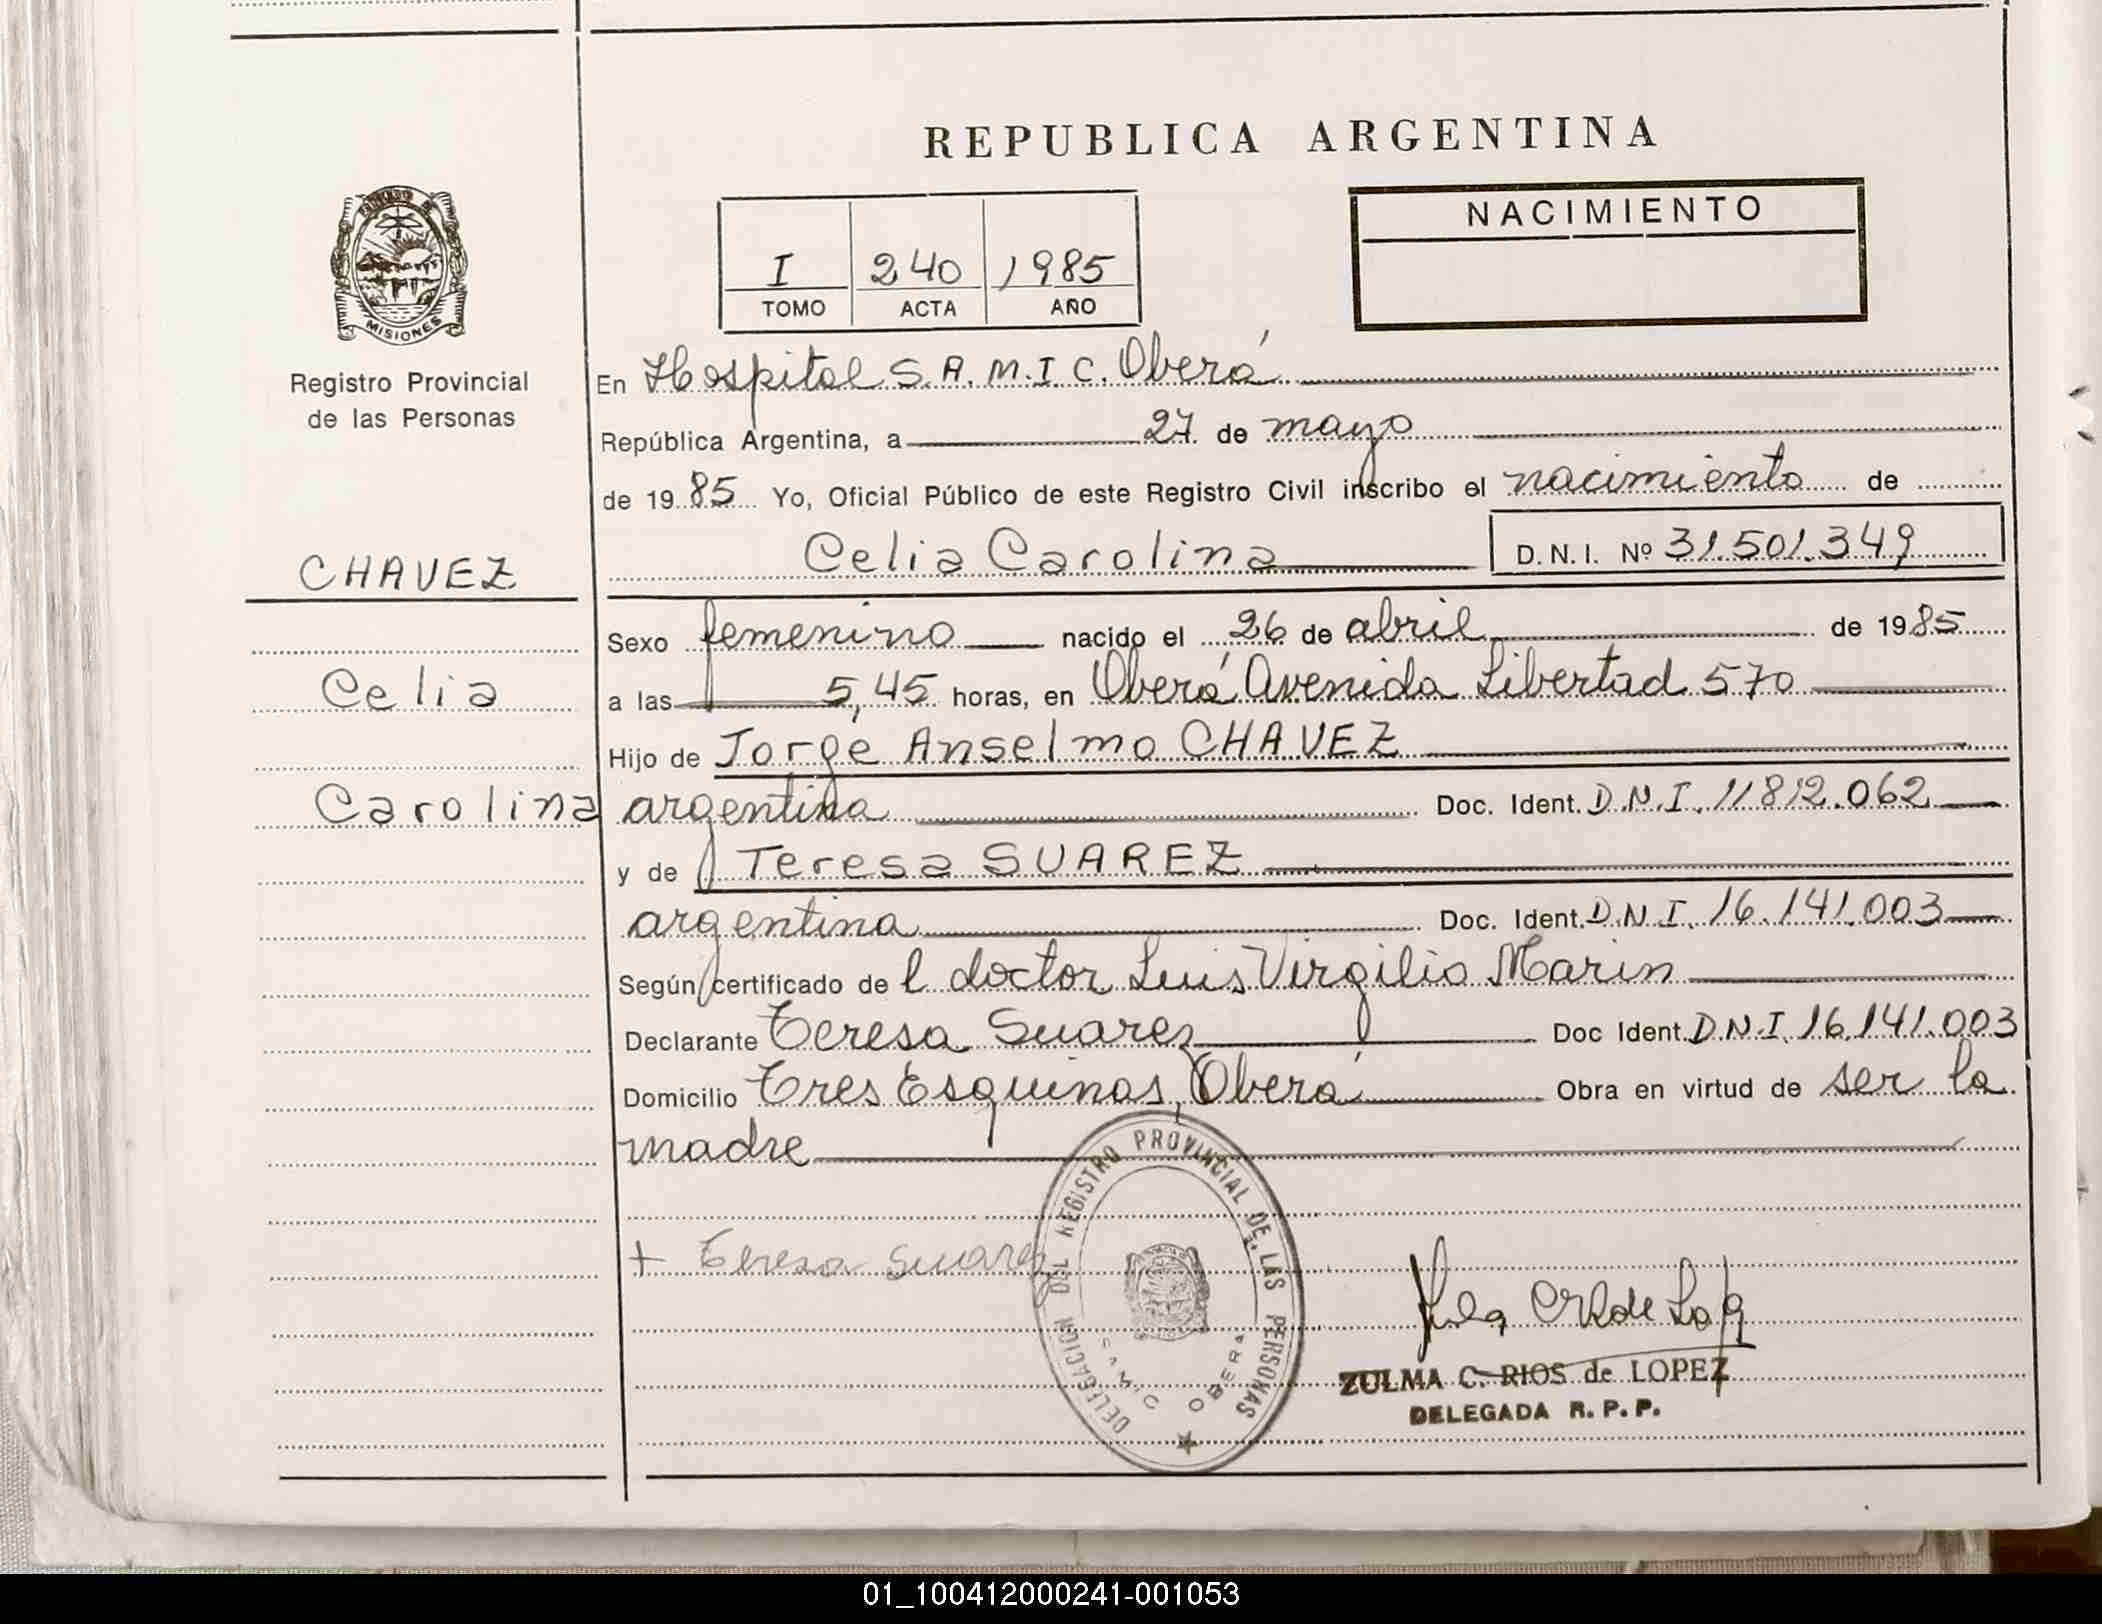 REPUBLICA ARGENTINA
MISIONES
Registro Provincial
de las Personas
I 240 1985
TOMO ACTA AÑO
NACIMIENTO
En Hospital S.A.M.I.C. Oberá
República Argentina, a 27 de mayo
de 1985 Yo, Oficial Público de este Registro Civil inscribo el nacimiento de
CHAVEZ
Celia Carolina D.N.I. Nº 31.501.349
Sexo femenino nacido el 26 de abril de 1985
Celia
a las 5,45 horas, en Oberá Avenida Libertad 570
Hijo de Jorge Anselmo CHAVEZ
Carolina
argentina Doc. Ident. D.N.I. 11812.062
y de Teresa SUAREZ
argentina Doc. Ident. D.N.I. 16.141.003
Según certificado de l doctor Luis Virgilio Marin
Declarante Teresa Suarez Doc Ident. D.N.I. 16.141.003
Domicilio Tres Esquinas, Oberá Obra en virtud de ser la
madre
+ Teresa Suarez
DELEGACION DEL REGISTRO PROVINCIAL DE LAS PERSONAS
SAMIC OBERA
ZULMA C. RIOS de LOPEZ
DELEGADA R.P.P.
01_100412000241-001053